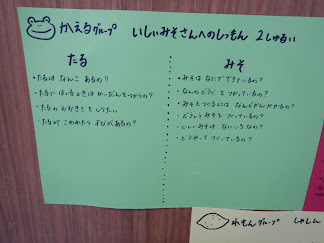 かえるグループ いしいみそさんへのしつもん 2しゅるい
たる
・たるは なんこ あるの?
・たるに はいるときは かいだんをつかうの?
・たるの おおきさを しりたい
・たるが こわれたら よびがあるの?
みそ
・みそは なにで できているの?
・なんの どうぐを つかっているの?
・みそをつくるには なんじかんかかるの?
・どういうみそを つくっているの?
・いしいみそは なにいろなの?
・どうやって つくっているの?
れもんグループ しゃしん